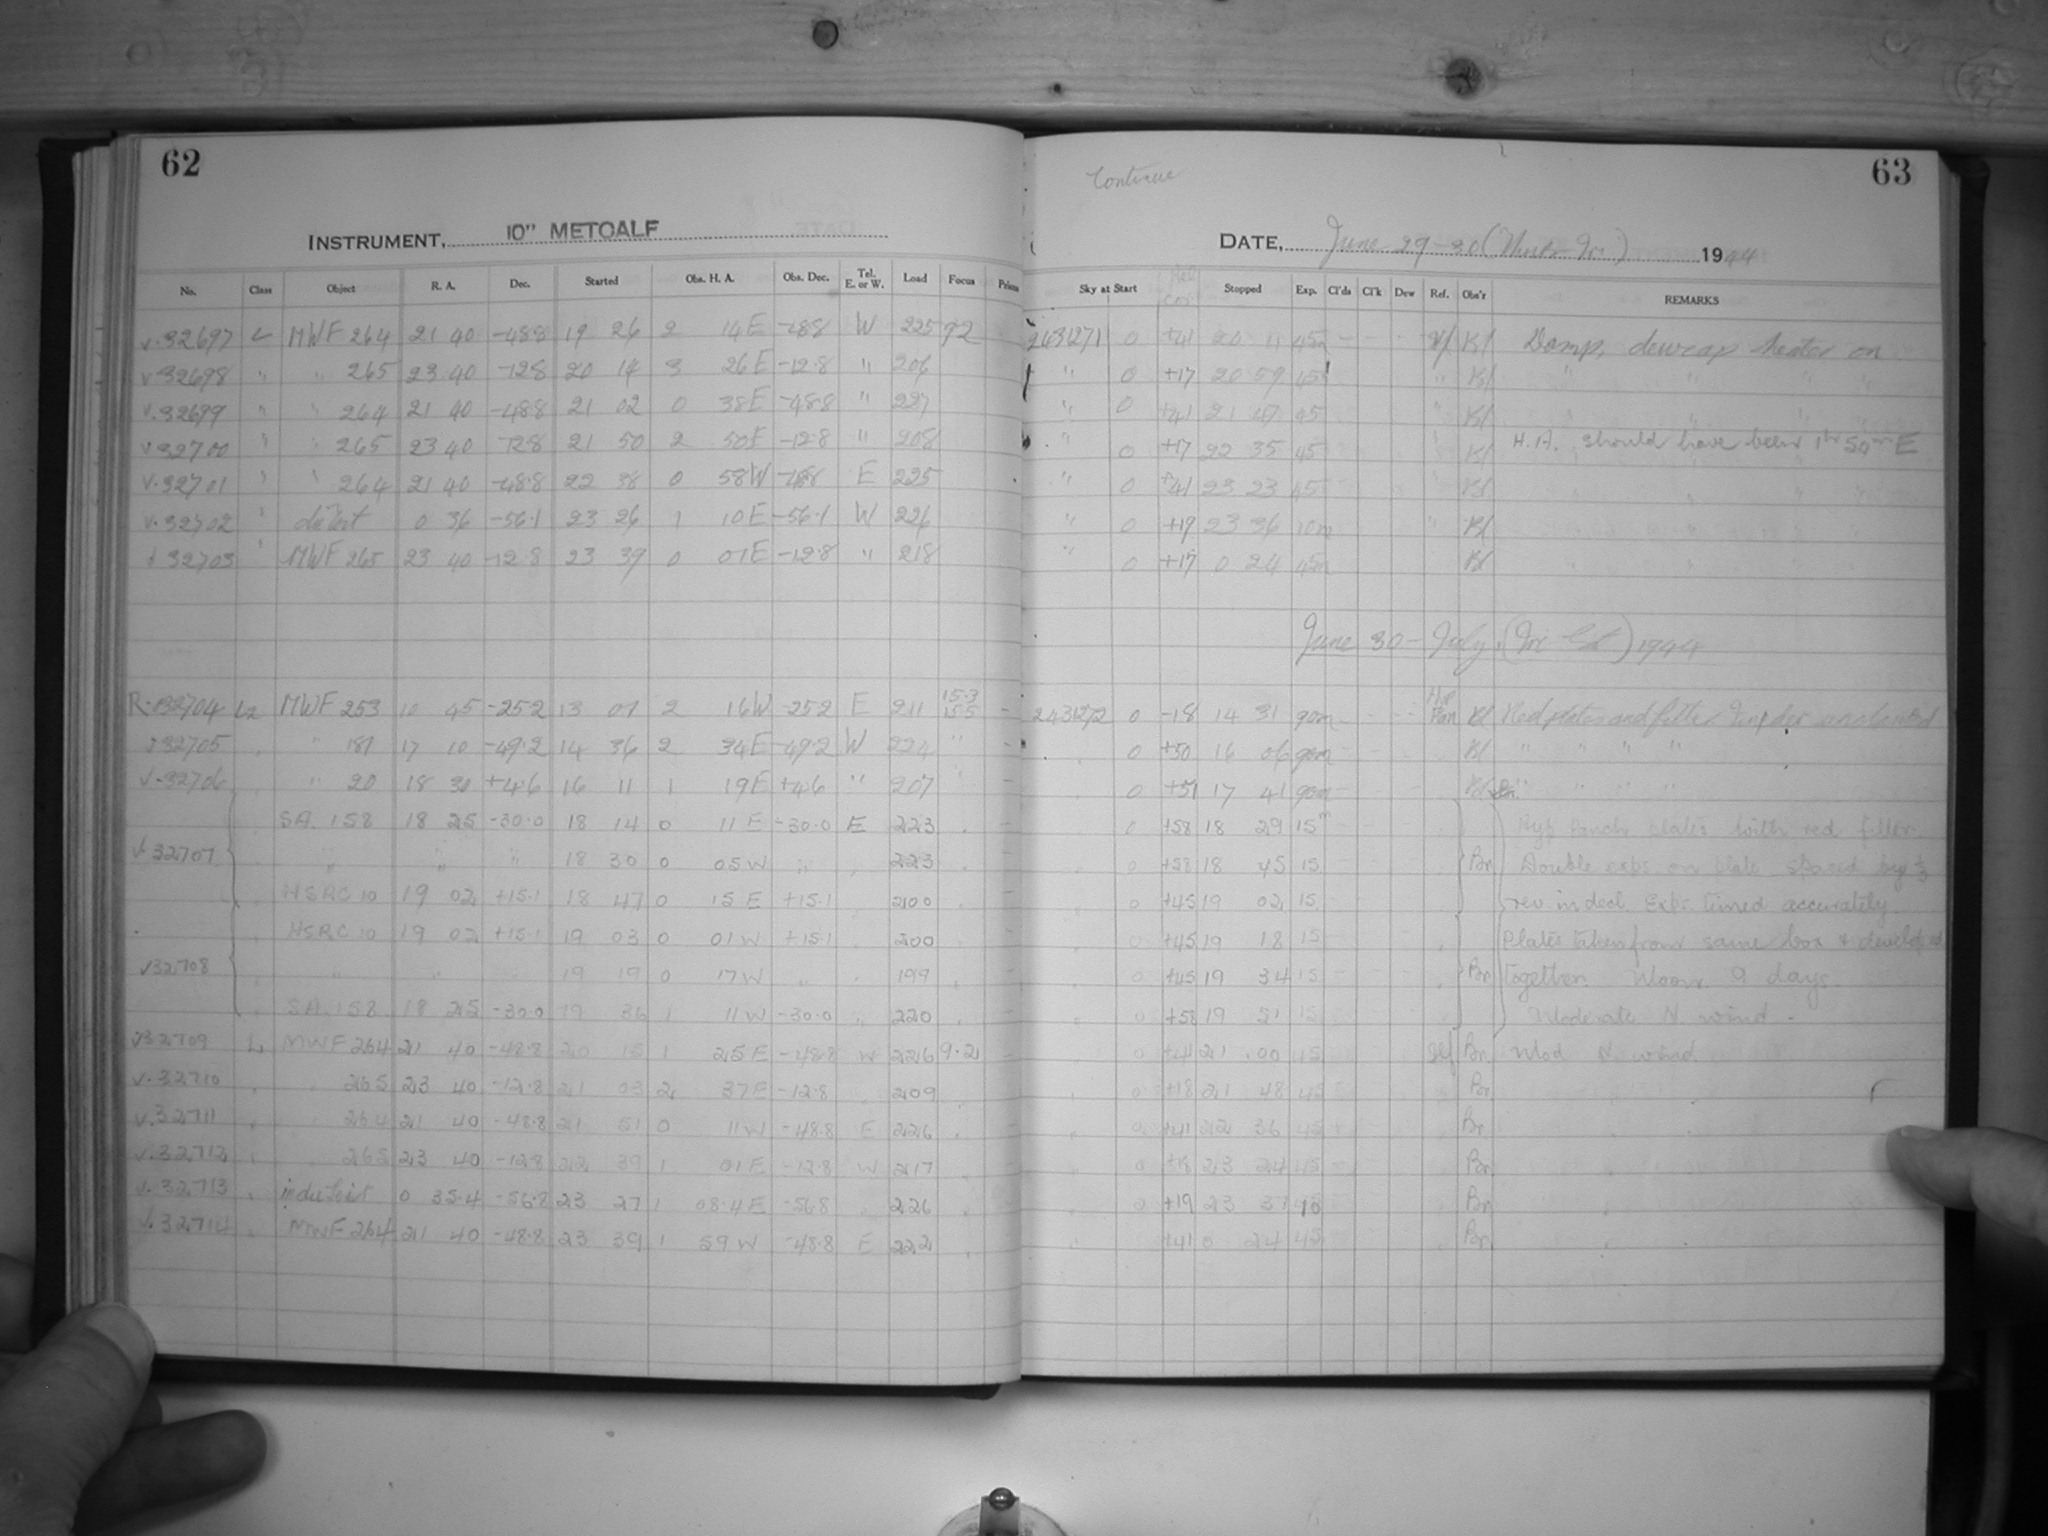 62
INSTRUMENT, 10" METCALF
No. Class Object R. A. Dec. Started Obs. H. A. Obs. Dec. Tel. E. or W. Load Focus Prism
v.32697 L MWF 264 21 40 -48.8 19 26 2 14E -48.8 W 225 9.2
v.32698 " " 265 23 40 -12.8 20 14 3 26E -12.8 " 206
v.32699 " " 264 21 40 -48.8 21 02 0 38E -48.8 " 227
v32700 " " 265 23 40 -12.8 21 50 2 50E -12.8 " 208
v.32701 " " 264 21 40 -48.8 22 38 0 58W -48.8 E 225
v.32702 " 0 36 -56.1 23 26 1 10E -56.1 W 226
32703 " MWF 265 23 40 -12.8 23 39 0 01E -12.8 " 218
R. 32704 L2 MWF 253 10 45 -25.2 13 01 2 16W -25.2 E 211 15.3 15.5 -
32705 " 181 17 10 -49.2 14 36 2 34E -49.2 W 224 " -
v.32706 " 20 18 30 +4.6 16 11 1 19E +4.6 " 207 -
SA. 158 18 25 -30.0 18 14 0 11E -30.0 E 223 -
v.32707 " " " 18 30 0 05W " 223 -
HSRC 10 19 02 +15.1 18 47 0 15E +15.1 200 -
HSRC 10 19 02 +15.1 19 03 0 01W +15.1 200 -
v32708 " " 19 19 0 17W 199 -
SA. 158 18 25 -30.0 19 36 1 11W -30.0 220 -
v32709 L MWF 264 21 40 -48.8 20 15 1 25E -48.8 W 226 9.2 -
v.32710 265 23 40 -12.8 21 03 2 37E -12.8 209
v.32711 264 21 40 -48.8 21 51 0 11W -48.8 E 226
v.32712 265 23 40 -12.8 22 39 1 01E -12.8 W 217
v.32713 0 35.4 -56.8 23 27 1 08.4E -56.8 226
v.32714 MWF 264 21 40 -48.8 23 39 1 59W -48.8 E 222
Continue
63
DATE, June 29-30 (Thurs-Fri) 1944
Sky at Start Stopped Exp. Cl'ds Cl'k Dew Ref. Obs'r REMARKS
2431271 0 +41 20 11 45 - - - Bl Damp, dewcap heater on
" 0 +17 20 59 45 " Bl " " " "
" 0 +41 21 47 45 " Bl
" 0 +17 22 35 45 Bl H.A. should have been 1hr 50m E
" 0 +41 23 23 45 Bl
" 0 +19 23 36 10m " Bl
" 0 +17 0 24 45m Bl
June 30 - July 1 (Fri-Sat) 1944
2431272 0 -18 14 31 90m - - - Bl Red plates and filter
0 +50 16 06 90m Bl " " " "
0 +51 17 41 90m
0 +58 18 29 15m Hyp Panch plates with red filter.
0 +58 18 45 15 Br Double exps. on plate spaced by ½
0 +45 19 02 15 rev. in decl. Exps. timed accurately.
0 +45 19 18 15 Plates taken from same box & developed
0 +45 19 34 15 Br together. Moon 9 days.
0 +58 19 51 15 Moderate N. wind.
0 +41 21 00 45 Br Mod N. wind.
0 +18 21 48 45 Br
0 +41 22 36 45 Br
0 +18 23 24 45 Br
0 +19 23 37 10 Br
+41 0 24 45 Br